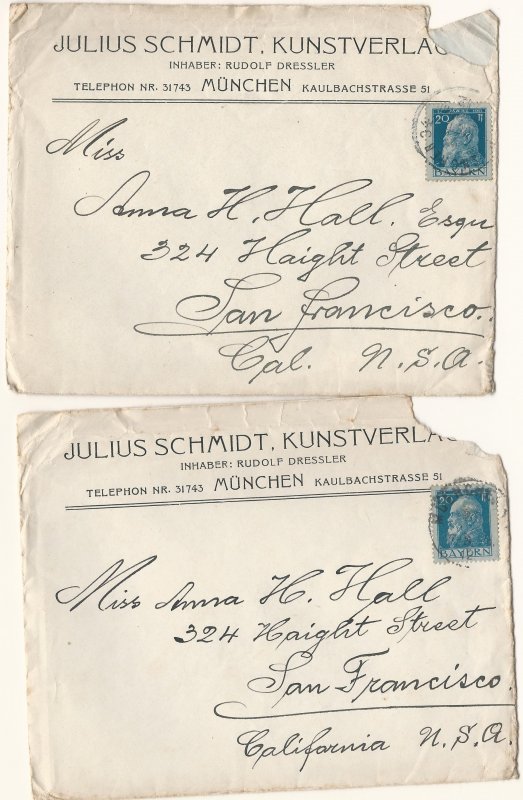 JULIUS SCHMIDT, KUNSTVERLAG
INHABER: RUDOLF DRESSLER
TELEPHON NR. 31743 MÜNCHEN KAULBACHSTRASSE 51
20
BAYERN
Miss
Anna H. Hall. Esqu
324 Haight Street
San Francisco.
Cal. U.S.A.
JULIUS SCHMIDT, KUNSTVERLAG
INHABER: RUDOLF DRESSLER
TELEPHON NR. 31743 MÜNCHEN KAULBACHSTRASSE 51
20
BAYERN
Miss Anna H. Hall
324 Haight Street
San Francisco.
California U.S.A.